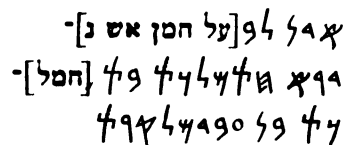 𐤀𐤃𐤍 𐤋𐤁[על חמן אש נ]-
𐤃𐤓 𐤀𐤇𐤕𐤌𐤋𐤊𐤕 𐤁𐤕 [חמל]-
𐤊𐤕 𐤁𐤍 𐤏𐤁𐤃𐤌𐤋𐤒𐤓𐤕